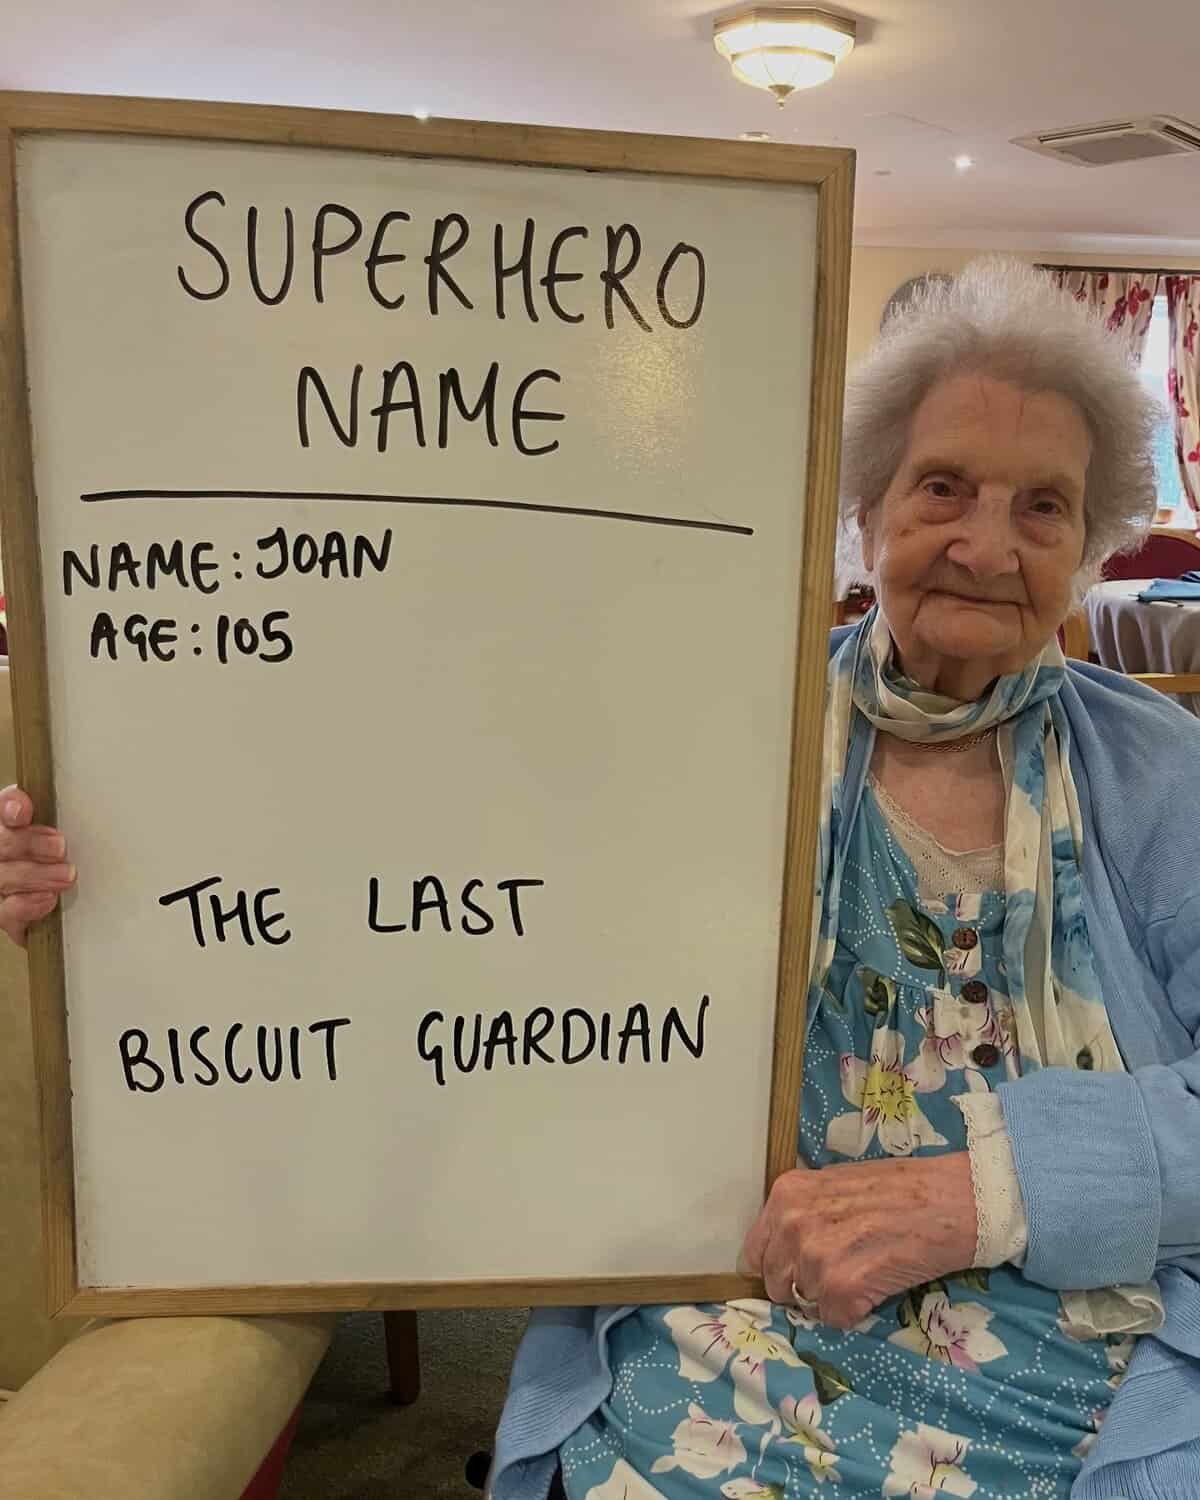 SUPERHERO
NAME
NAME: JOAN
AGE: 105
THE LAST
BISCUIT GUARDIAN